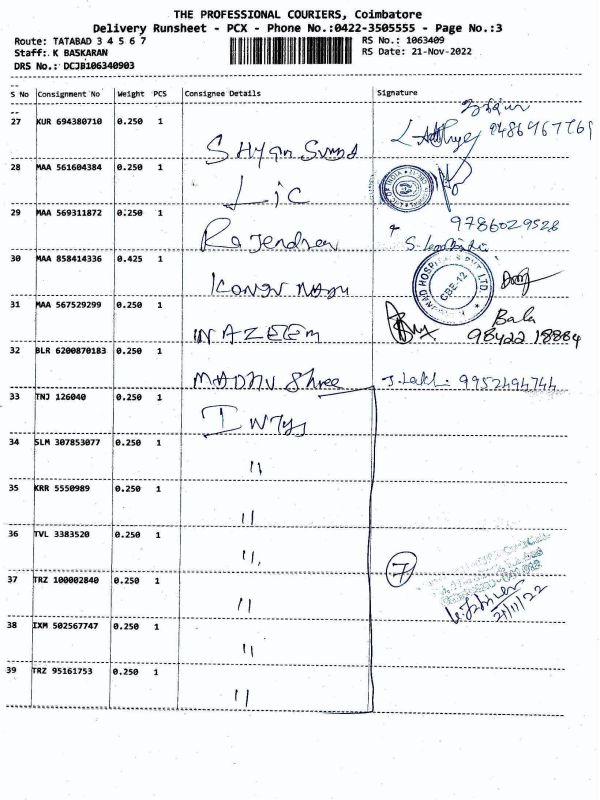 THE PROFESSIONAL COURIERS, Coimbatore
Delivery Runsheet - PCX - Phone No.:0422-3505555 - Page No.:3
Route: TATABAD 3 4 5 6 7
Staff: K BASKARAN
DRS No.: DCJB106340903
RS No.: 1063409
RS Date: 21-Nov-2022
S No Consignment No Weight PCS Consignee Details Signature
27 KUR 694380710 0.250 1
28 MAA 561604384 0.250 1 LIC
29 MAA 569311872 0.250 1 Rajendran 9786029528
30 MAA 858414336 0.425 1 KONGU NADU
31 MAA 567529299 0.250 1 Bala
98422 18884
32 BLR 6200870183 0.250 1 MADHU Shree 9952494744
33 TNJ 126040 0.250 1
34 SLM 307853077 0.250 1 "
35 KRR 5550989 0.250 1 "
36 TVL 3383520 0.250 1 "
37 TRZ 100002840 0.250 1 " 7
21/11/22
38 IXM 502567747 0.250 1 "
39 TRZ 95161753 0.250 1 "
CBE-12